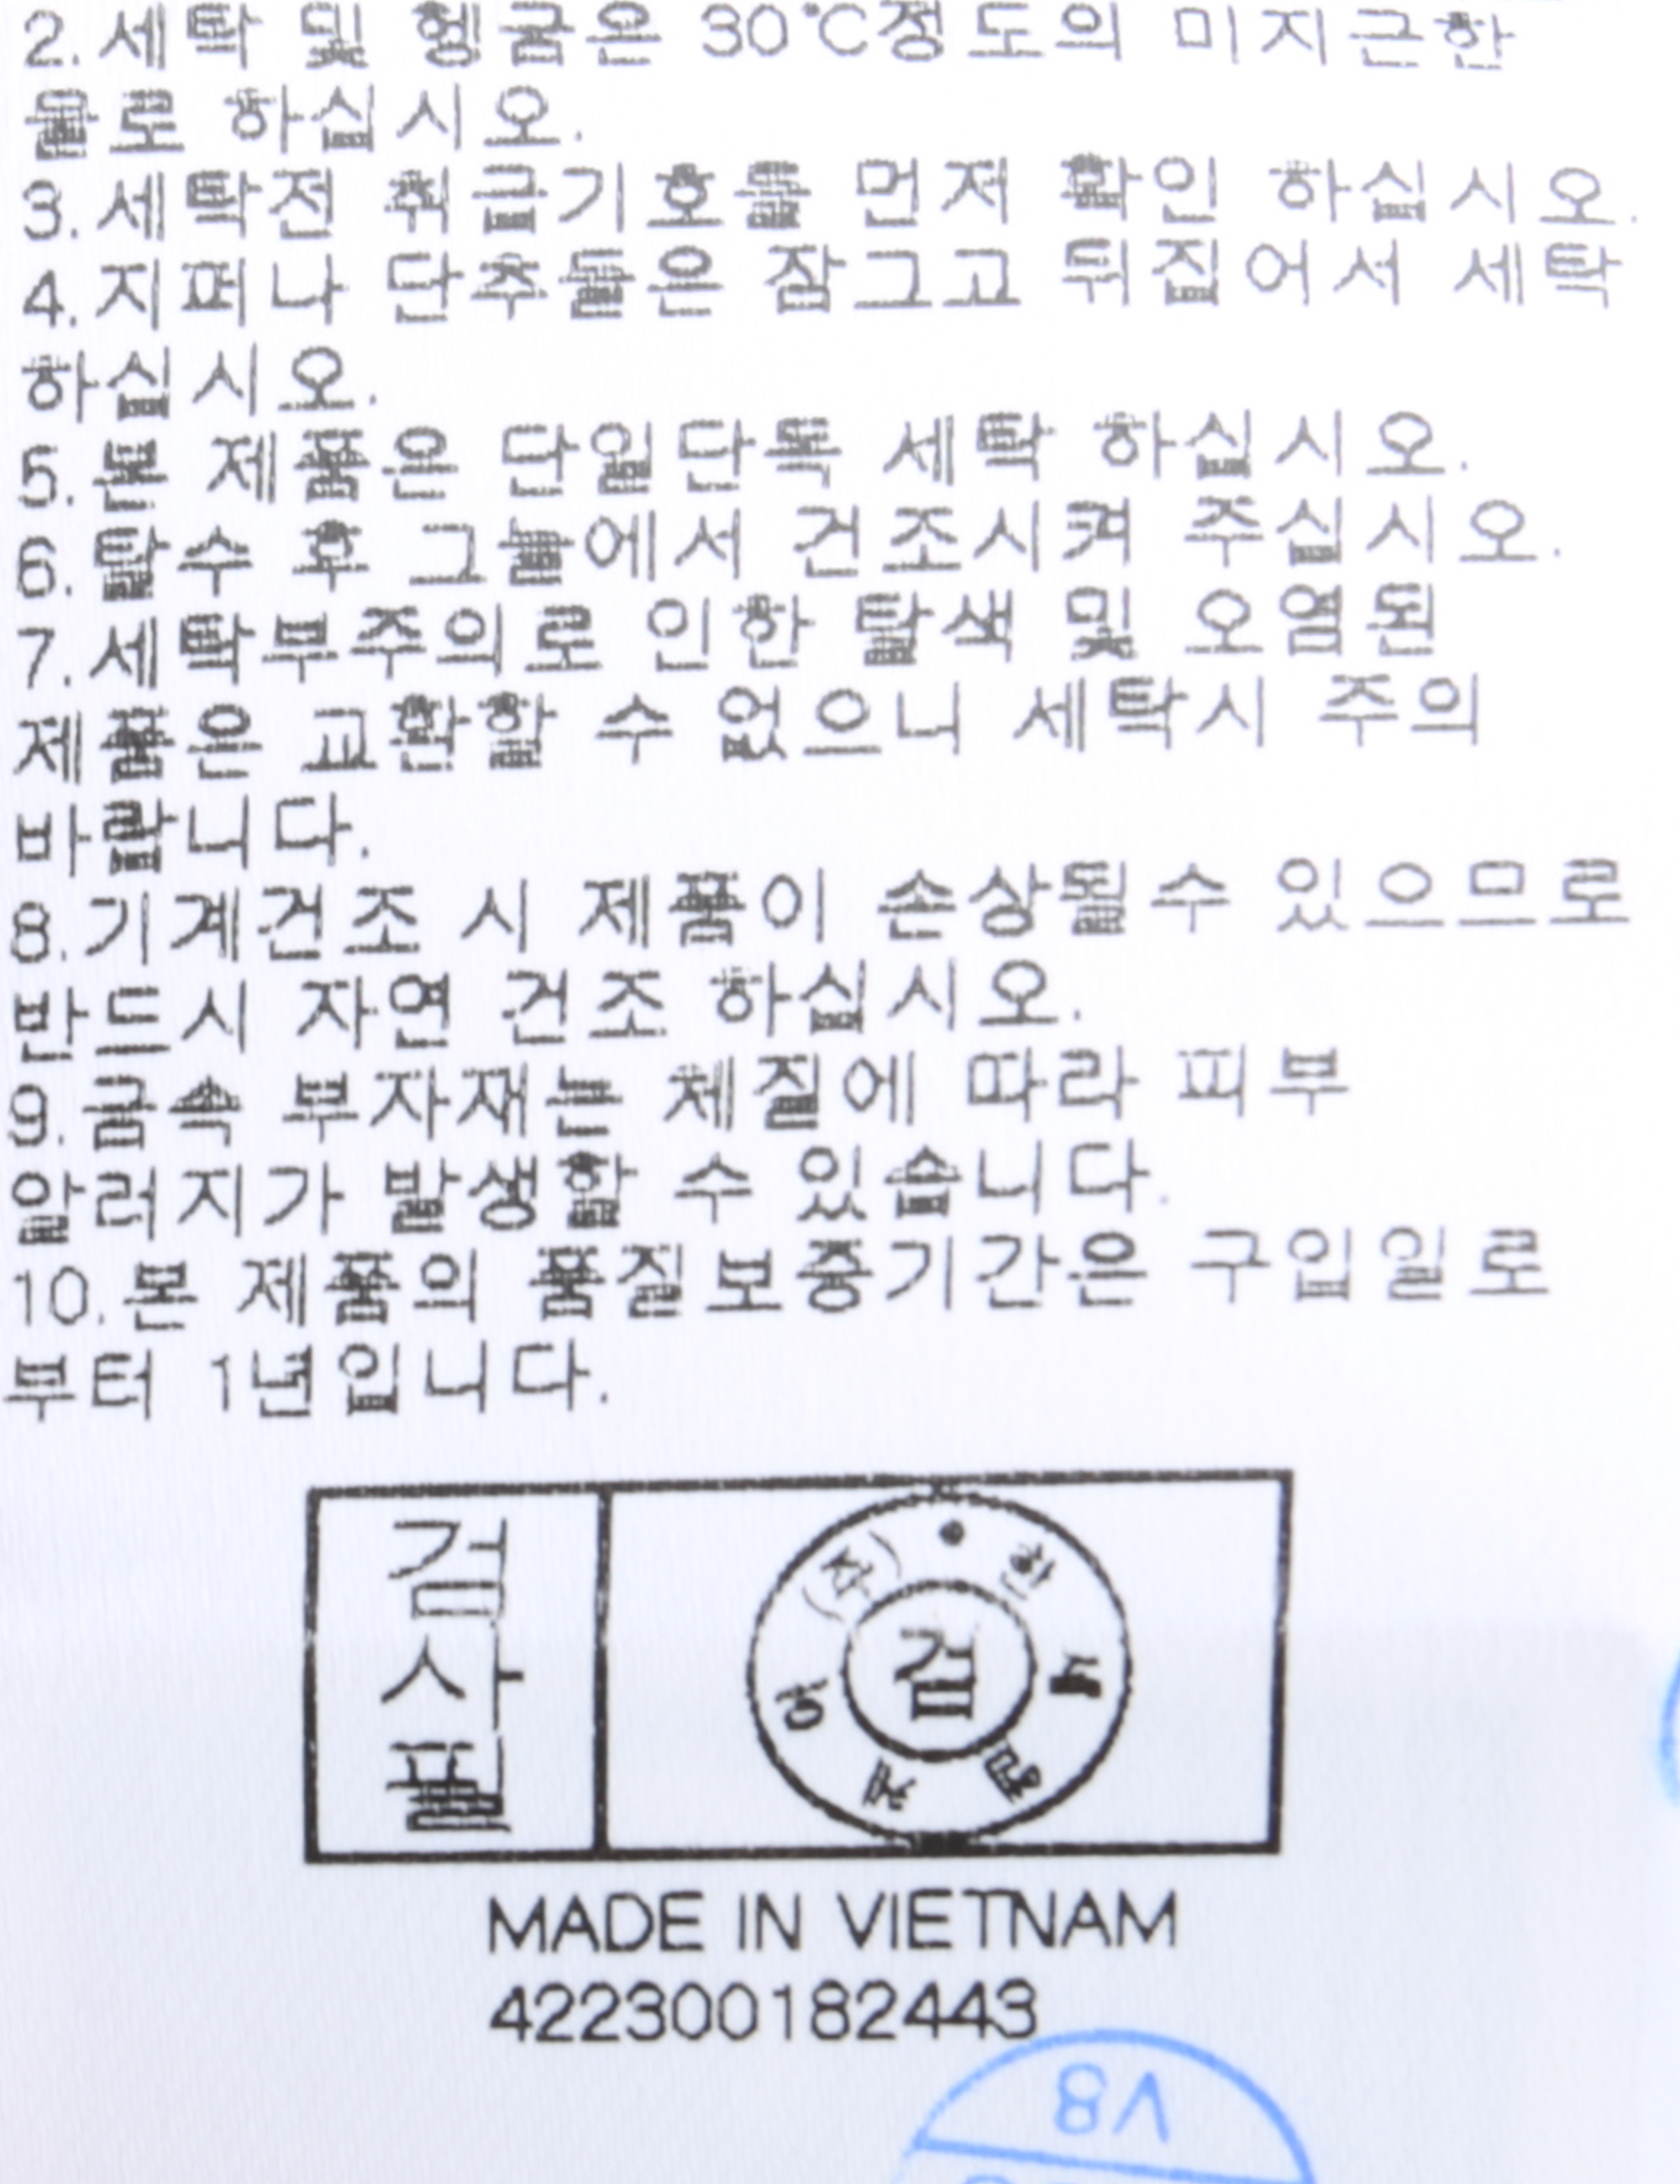 2.세탁 및 헹굼은 30℃정도의 미지근한
물로 하십시오.
3.세탁전 취급기호를 먼저 확인 하십시오.
4.지퍼나 단추들은 잠그고 뒤집어서 세탁
하십시오.
5.본 제품은 단일단독 세탁 하십시오.
6.탈수 후 그늘에서 건조시켜 주십시오.
7.세탁부주의로 인한 탈색 및 오염된
제품은 교환할 수 없으니 세탁시 주의
바랍니다.
8.기계건조 시 제품이 손상될수 있으므로
반드시 자연 건조 하십시오.
9.금속 부자재는 체질에 따라 피부
알러지가 발생할 수 있습니다.
10.본 제품의 품질보증기간은 구입일로
부터 1년입니다.
검
사
필
(주)
한
검
MADE IN VIETNAM
422300182443
V8